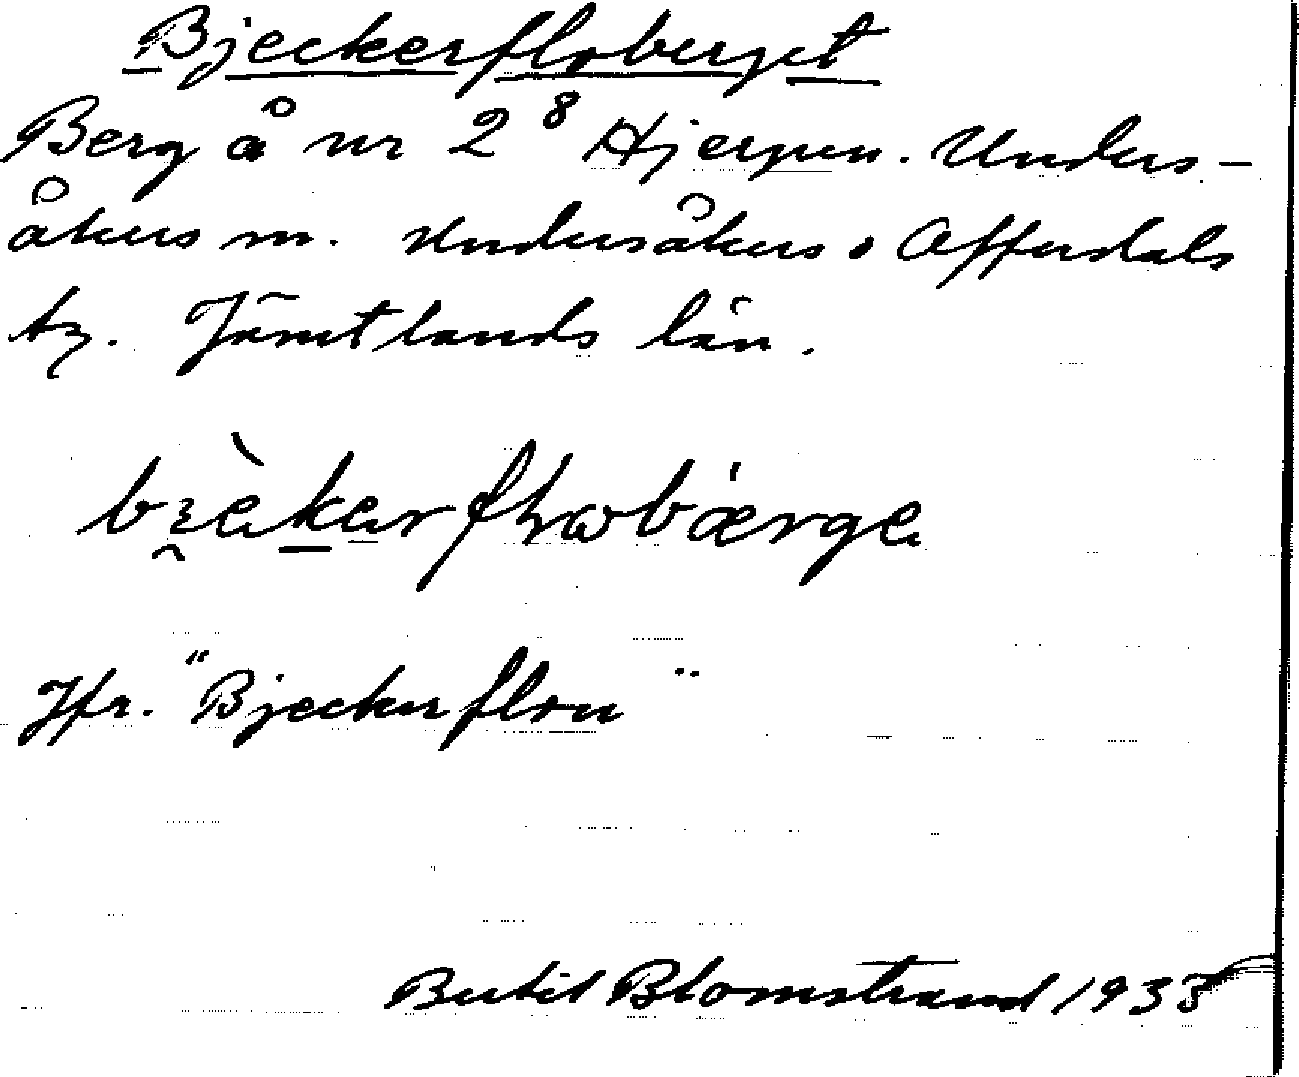 Bjeckerfloberget
Berg å nr 2⁸ Hjerpen. Unders-
åkers sn. Undersåkers o Offerdals
tg. Jämtlands län.
Jfr. "Bjeckerflon"
Bertil Blomstrand